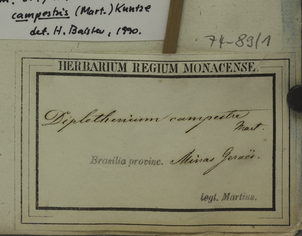 campestris (Mart.) Kuntze
det. H. Balslev, 1990.
74-83/1
HERBARIUM REGIUM MONACENSE.
Diplothemium campestre
Mart.
Brasilia provinc. Minas Geraës.
legi. Martius.